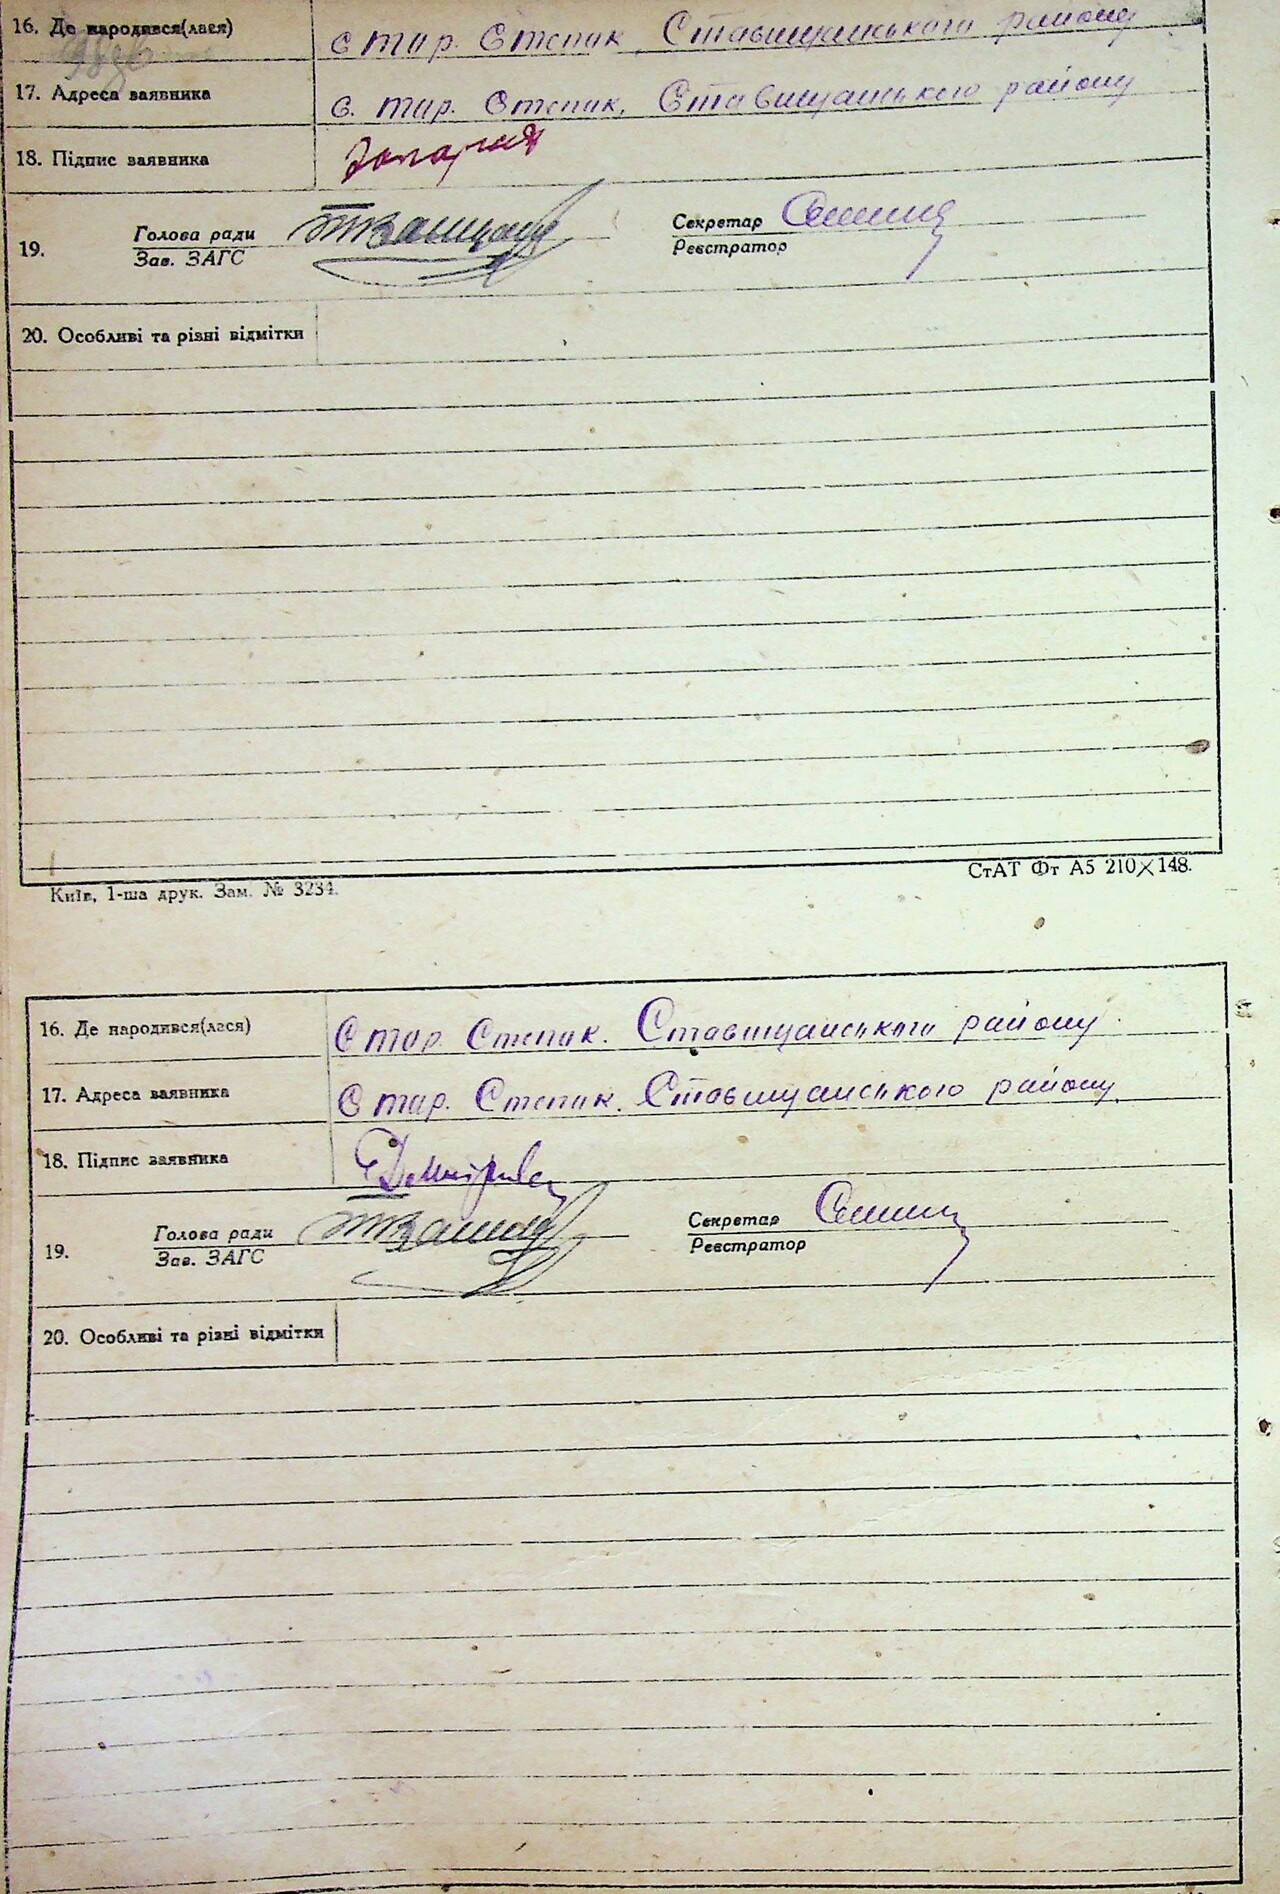 16. Де народився(лася) с тар. Степок, Ставищанського району
17. Адреса заявника с. тар. Степок, Ставищанського району
18. Підпис заявника
19. Голова ради Секретар
Зав. ЗАГС Реєстратор
20. Особливі та різні відмітки
СтАТ Фт А5 210×148.
Київ, 1-ша друк. Зам. № 3234.
16. Де народився(лася) с тар. Степок. Ставищанського району
17. Адреса заявника с тар. Степок. Ставищанського району
18. Підпис заявника
19. Голова ради Секретар
Зав. ЗАГС Реєстратор
20. Особливі та різні відмітки